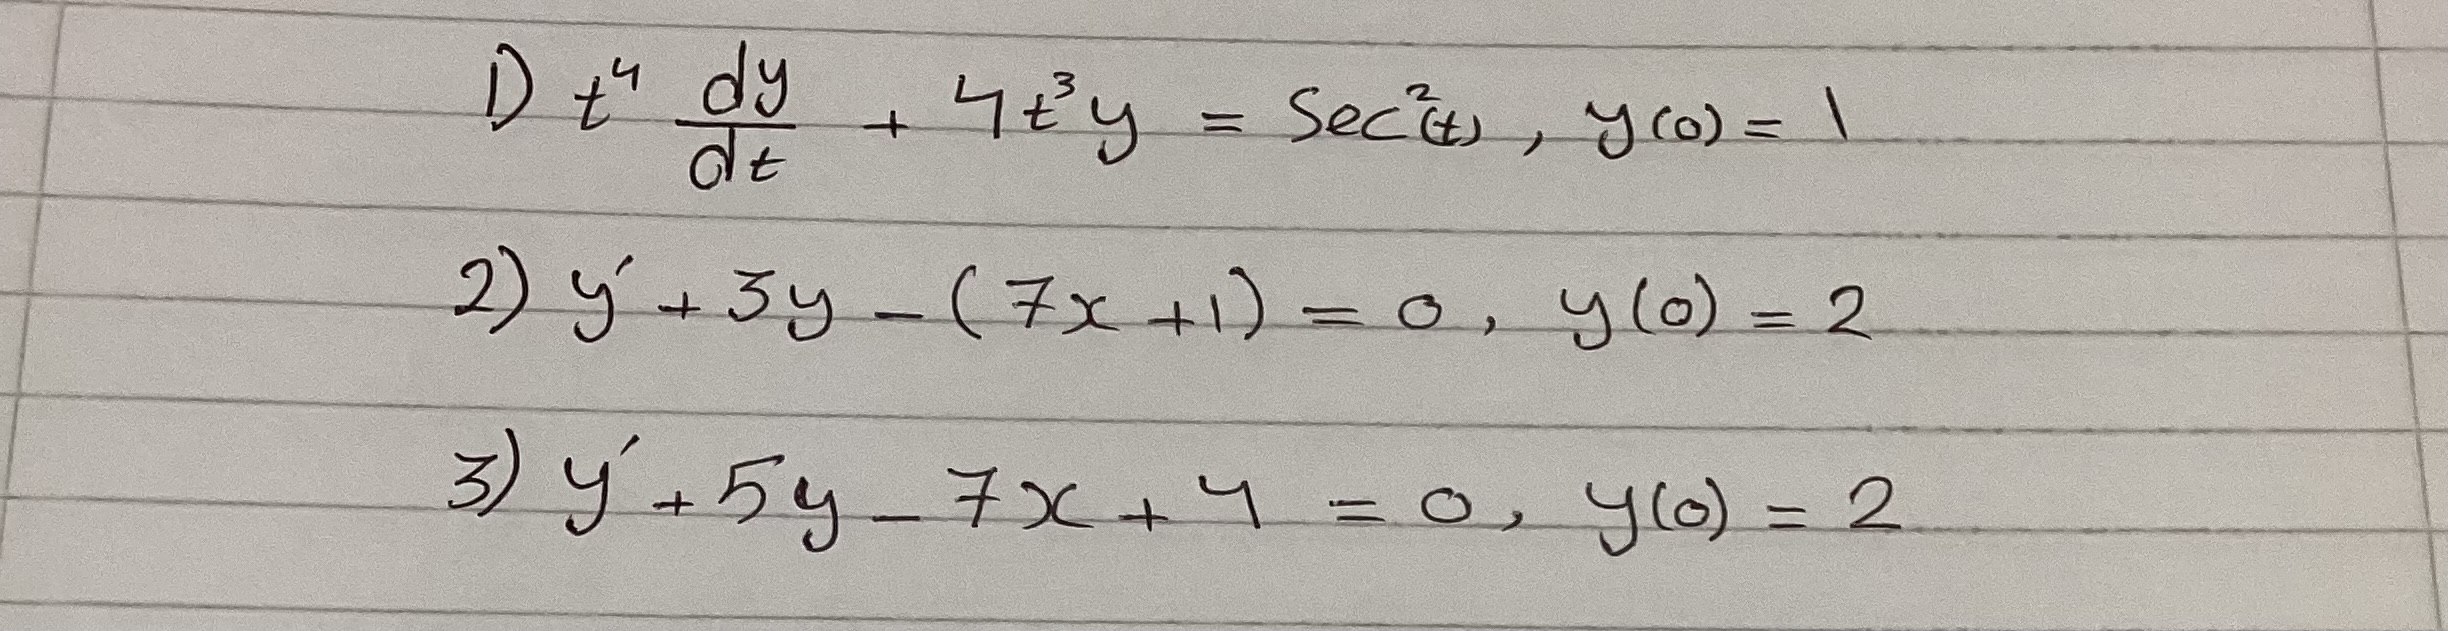 1) t⁴ dy/dt + 4t³y = Sec²(t), y(0) = 1
2) y′ + 3y – (7x + 1) = 0, y(0) = 2
3) y′ + 5y – 7x + 4 = 0, y(0) = 2